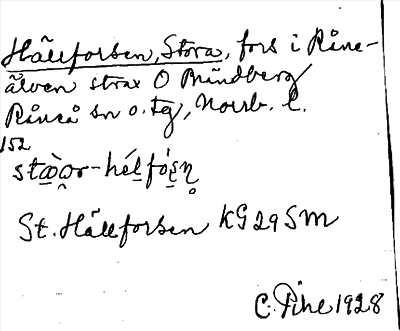 Hällforsen, Stora, fors i Råne-
älven strax O Brändberg
Råneå sn o. tg, Norrb. l.
152
St. Hällforsen KG29SM
C. Pihl 1928